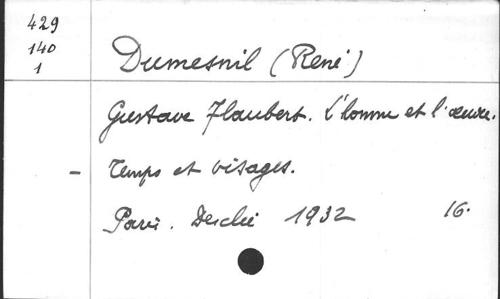 429
140
1
Dumesnil (René)
Gustave Flaubert. L'homme et l'œuvre.
- Temps et visages.
Paris. Desclée 1932 16.